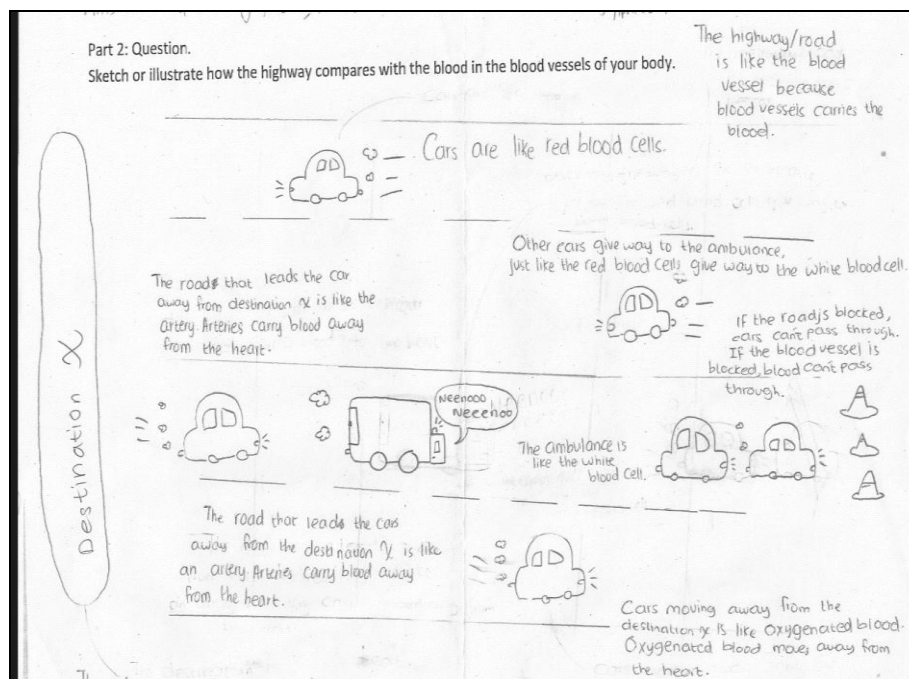 Part 2: Question.
Sketch or illustrate how the highway compares with the blood in the blood vessels of your body.
The highway/road
is like the blood
vessel because
blood vessels carries the
blood.
Cars are like red blood cells.
Other cars give way to the ambulance,
just like the red blood cells give way to the white blood cell.
The roads that leads the car
away from destination x is like the
artery. Arteries carry blood away
from the heart.
If the road is blocked,
cars can't pass through.
If the blood vessel is
blocked, blood can't pass
through.
Destination x
Neenooo
Neeenoo
The ambulance is
like the white
blood cell.
The road that leads the cars
away from the destination x is like
an artery. Arteries carry blood away
from the heart.
Cars moving away from the
destination x is like oxygenated blood.
Oxygenated blood moves away from
the heart.